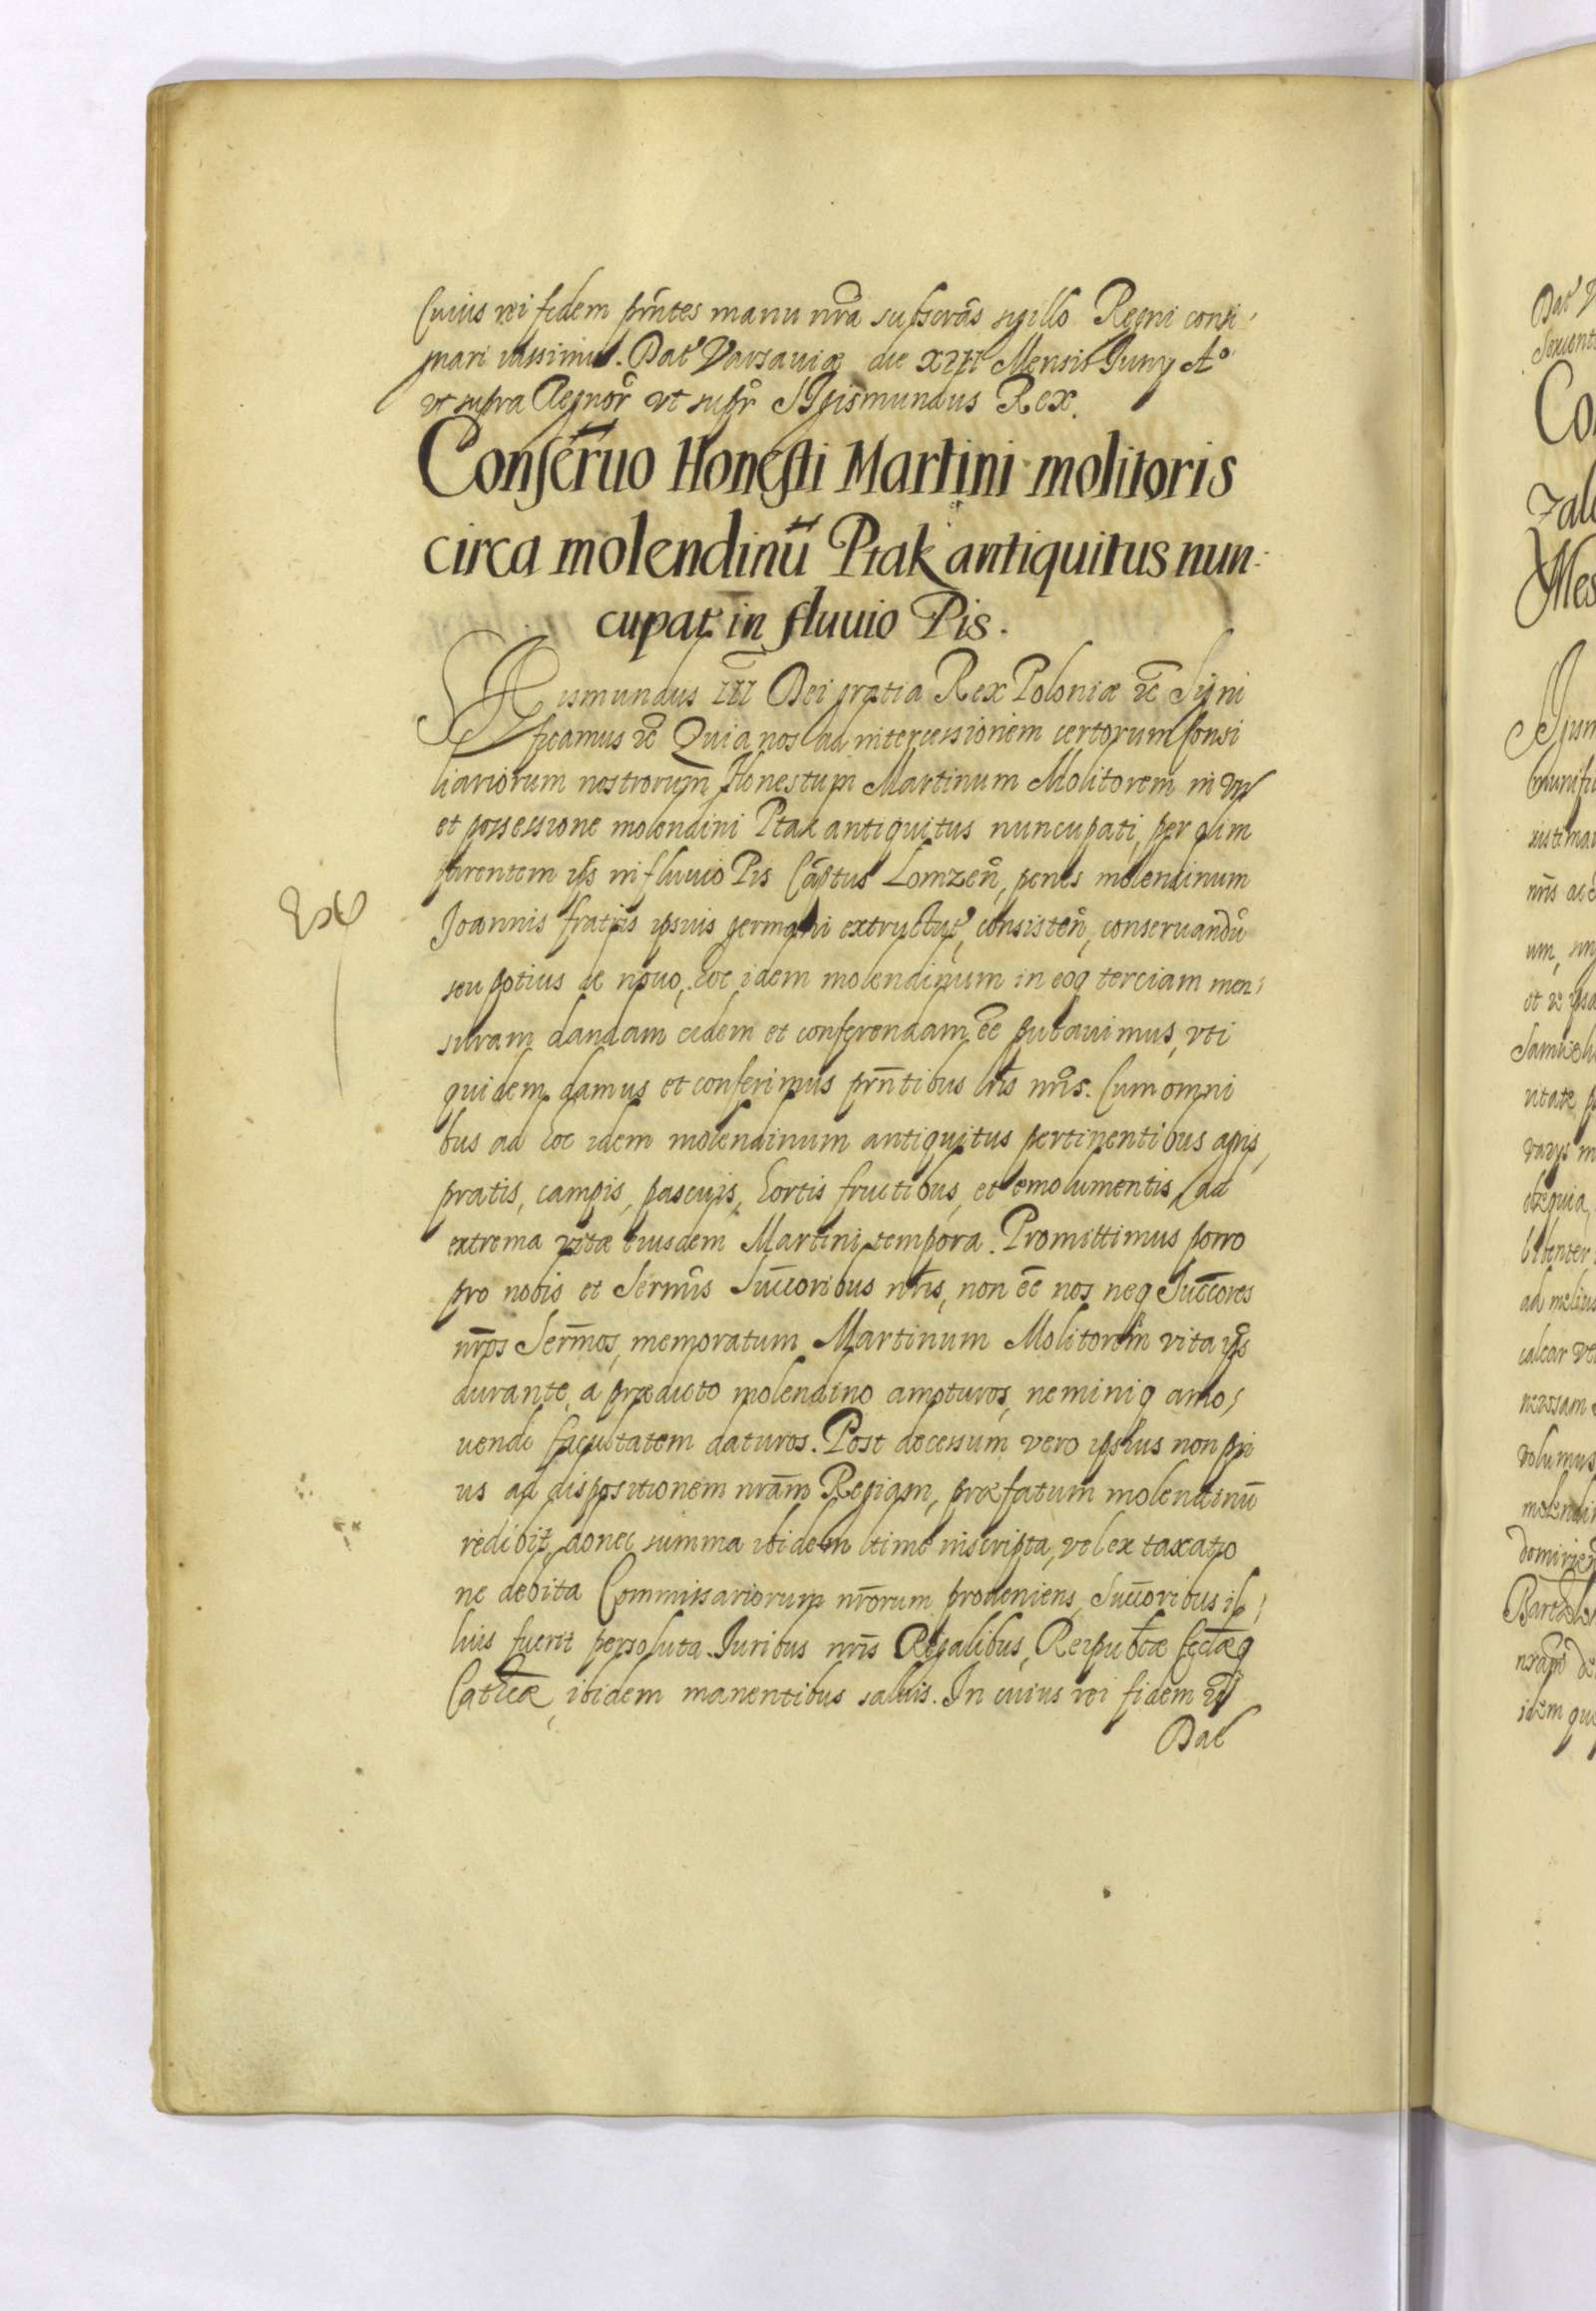 Cuius rei fidem prñtes manu nra subscrās sigillo Regni consi
gnari iussimus. Dat Varsauiæ die XIII Mensis Juny Aº
vt supra Regnor vt supr Sigismundus Rex.
Conseruo Honesti Martini molitoris
circa molendinū Ptak antiquitus nun-
cupat in fluuio Pis.
Sigismundus III Dei gratia Rex Poloniæ &c Signi
ficamus &c Quia nos ad intercessionem certorum Consi
liariorum nostrorum Honestum Martinum Molitorem in vsu
et possessione molendini Ptak antiquitus nuncupati, per olim
parentem ips in fluuio Pis Captus Lomzeñ, penes molendinum
Joannis fratris ipsius germani extructus, consisteñ, conseruandū
seu potius de nouo, hoc idem molendinum in eoq terciam men
suram dandam eidem et conferendam ee putauimus, vti
quidem damus et conferimus prñtibus lris nris. Cum omni
bus ad hoc idem molendinum antiquitus pertinentibus agris,
pratis, campis, pascuis, hortis fructibus, et emolumentis, ad
extrema vitæ eiusdem Martini tempora. Promittimus porro
pro nobis et Sermis Succoribus nris, non ee nos neq Succores
nros Sermos, memoratum Martinum Molitorem vita ips
durante, a prædicto molendino amoturos, neminiq amo
uendi facultatem daturos. Post decessum vero ipsius non pri
us ad dispositionem nram Regiam, præfatum molendinū
redibit, donec summa ibidem ltime inscripta, vel ex taxatio
ne debita Commissariorum nrorum proueniens, Succoribus il
lius fuerit persoluta. Juribus nris Regalibus, Reipubcæ Ecclæq
Cathcæ, ibidem manentibus saluis. In cuius rei fidem &c
Dat